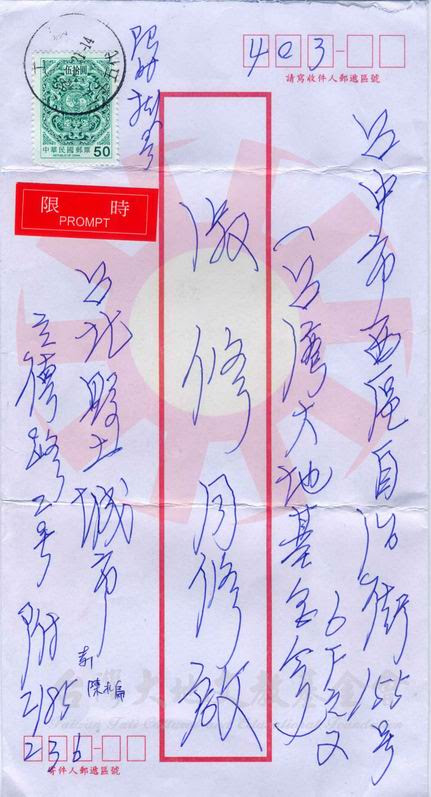 403
請寫收件人郵遞區號
台中市西區自治街155號
6F之2
(台灣大地基金會)
激修同修啟
限時掛號
伍拾圓
中華民國郵票
REPUBLIC OF CHINA
50
限時
PROMPT
台北縣土城市
立德路2號附
2185
陳水扁
236
寄件人郵遞區號